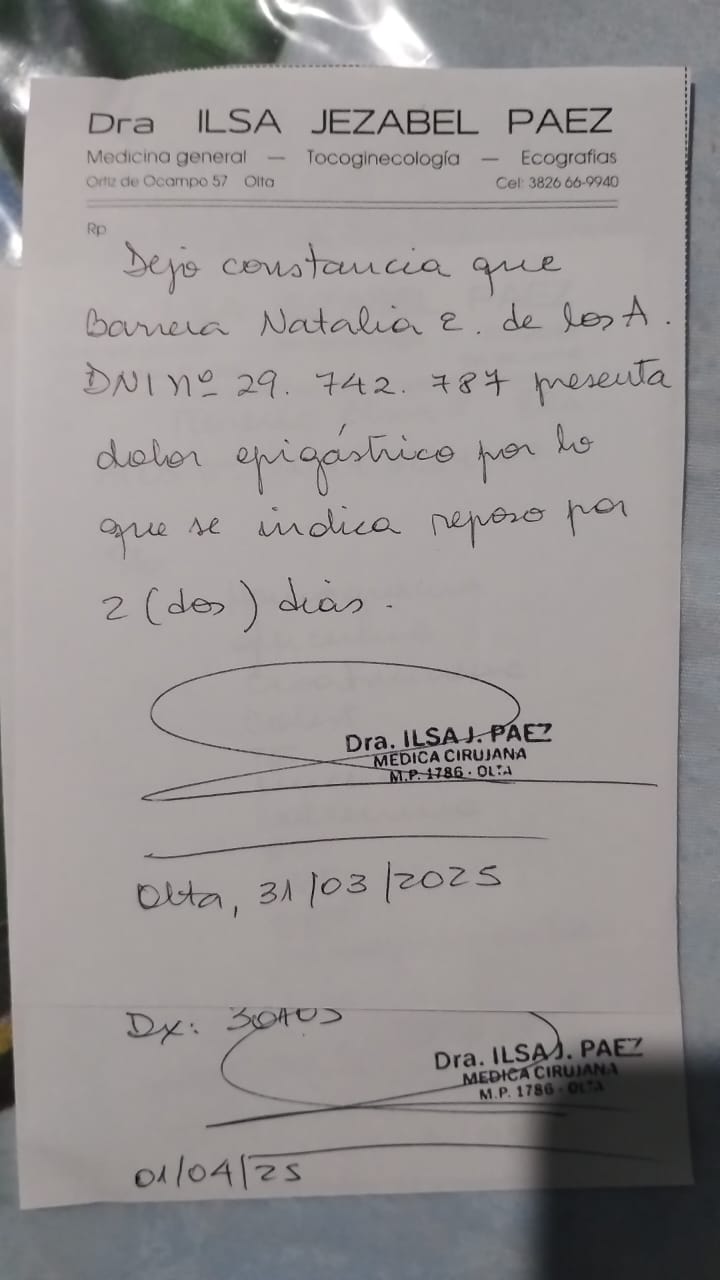 Dra ILSA JEZABEL PAEZ
Medicina general — Tocoginecología — Ecografias
Ortiz de Ocampo 57 Olta Cel: 3826 66-9940
Rp
Dejo constancia que
Barrera Natalia E. de los A.
DNI nº 29. 742. 787 presenta
dolor epigástrico por lo
que se indica reposo por
2 (dos) días.
Dra. ILSA J. PAEZ
MEDICA CIRUJANA
M.P. 1786 - OLTA
Olta, 31/03/2025
Dx:
Dra. ILSA J. PAEZ
MEDICA CIRUJANA
M.P. 1786 - OLTA
01/04/25